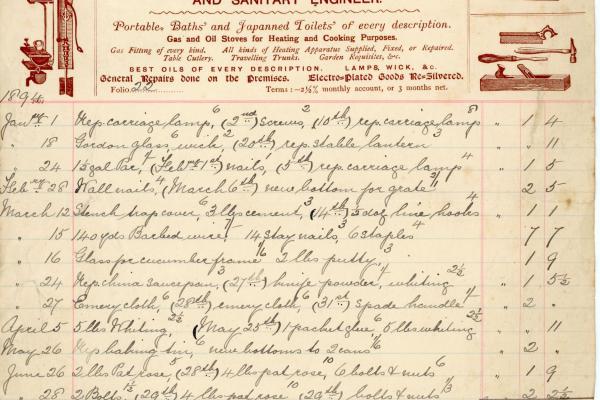 AND SANITARY ENGINEER.
Portable Baths and Japanned Toilets of every description.
Gas and Oil Stoves for Heating and Cooking Purposes.
Gas Fitting of every kind. All kinds of Heating Apparatus Supplied, Fixed, or Repaired.
Table Cutlery. Travelling Trunks. Garden Requisites, &c.
BEST OILS OF EVERY DESCRIPTION. LAMPS, WICK, &c.
General Repairs done on the Premises. Electro-Plated Goods Re-Silvered.
Folio 22 Terms:—2½% monthly account, or 3 months net.
1894
Jany 1 Rep. carriage lamp, 6 (2nd) Screws, 2 (10th) rep. carriage lamps 8 " 4
" 18 Gordon glass, 6 wick, 2 (20th) rep. stable lantern 3 " " 11
" 24 1½ gal Par, (Feby 1st) nails, (5th) rep. carriage lamp 4 " 1 5
Feby 28 Wall nails, 4 (March 6th) new bottom for grate " 2 5
March 12 Stench trap cover, 6 3 lbs cement, 3 (14th) line hooks 4 " 1 1
" 15 140 yds Barbed wire, 14 Stay nails, 3 6 staples 4 " 7 7
" 16 Glass for cucumber frame 1/6 2 lbs putty, 3 " 1 9
" 24 Rep. china saucepan, (27th) knife powder, whiting 2½ " 1 5½
" 27 Emery cloth, 6 (28th) emery cloth, 6 (31st) Spade handle " 2 "
April 5 5 lbs Whiting, 2½ (May 25th) 1 packet glue, 6 5 lbs whiting 2½ " " 11
May 26 Rep baking tin, 6 new bottoms to 2 cans 1/6 " 2 "
June 26 2 lbs Pat rose, 5 (28th) 4 lbs pat rose, 10 6 bolts & nuts 6 " 1 9
" 28 2 Bolts, (29th) 4 lbs pat rose 10 (29th) bolts & nuts " 2 2½